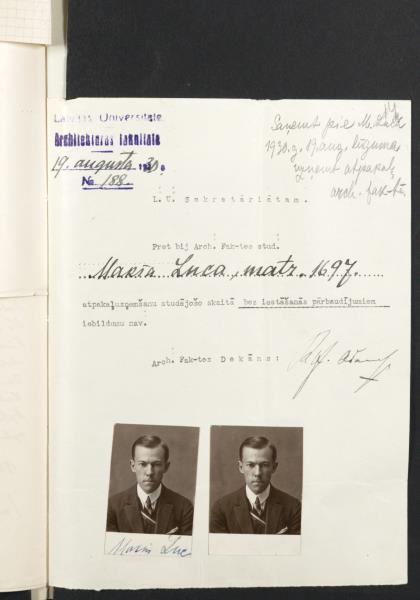 Latvijas Universitate
Architekturas fakultate
19. augusta 1930
№ 188.
Saņemt pie M. Luca
1930. g. 19. aug. lūguma
uzņemt atpakaļ
arch. fak-tē.
L. U. Sekretariatam.
Pret bij Arch. Fak-tes stud.
Maksa Luca, matr. 1697.
atpakaļuzņemšanu studējošo skaitā bez iestāšanās pārbaudījumiem
iebildumu nav.
Arch. Fak-tes Dekāns: